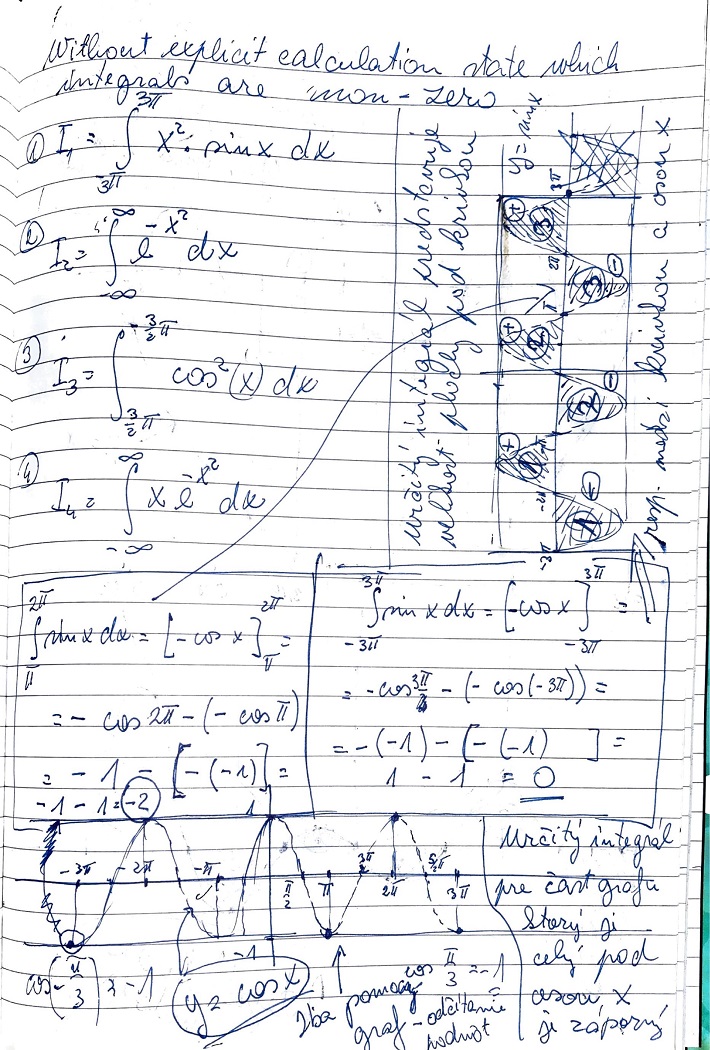 Without explicit calculation state which
integrals are non-zero
① I₁ = ∫ x²·sinx dx
3π
-3π
② I₂ = ∫ e^-x² dx
∞
-∞
③ I₃ = ∫ cos²(x) dx
-3/2π
3/2π
④ I₄ = ∫ x e^-x² dx
∞
-∞
určitý integrál predstavuje
veľkosť plochy pod krivkou
y = sinx
-3π -2π -π π 2π 3π
+ + + - - -
1 1 2 2 3 3
resp. medzi krivkou a osou x
2π 2π
∫ sin x dx = [-cos x] =
π π
= - cos 2π - (- cos π)
= - 1 - [-(-1)] =
-1 - 1 = -2
3π 3π
∫ sin x dx = [-cos x] =
-3π -3π
= -cos 3π - (- cos(-3π)) =
= -(-1) - [-(-1) ] =
1 - 1 = 0
1
-3π -2π -π π/2 π 3π/2 2π 5/2π 3π
-1
cos(-π/3) = -1
y = cos x
cos π/3 = -1
iba pomocný
graf - odčítanie
hodnôt
Určitý integrál
pre časť grafu
ktorý je
celý pod
osou x
je záporný